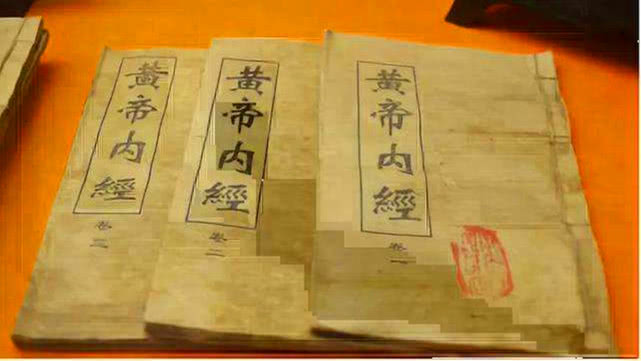 黄帝内經
卷一
黄帝内經
卷二
黄帝内經
卷三